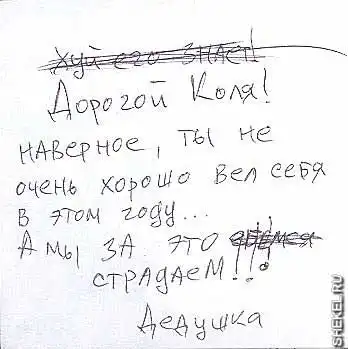 Хуй его знает!
Дорогой Коля!
наверное, ты не
очень хорошо вел себя
в этом году...
А мы за это
страдаем!!!
Дедушка
SHEKEL.RU